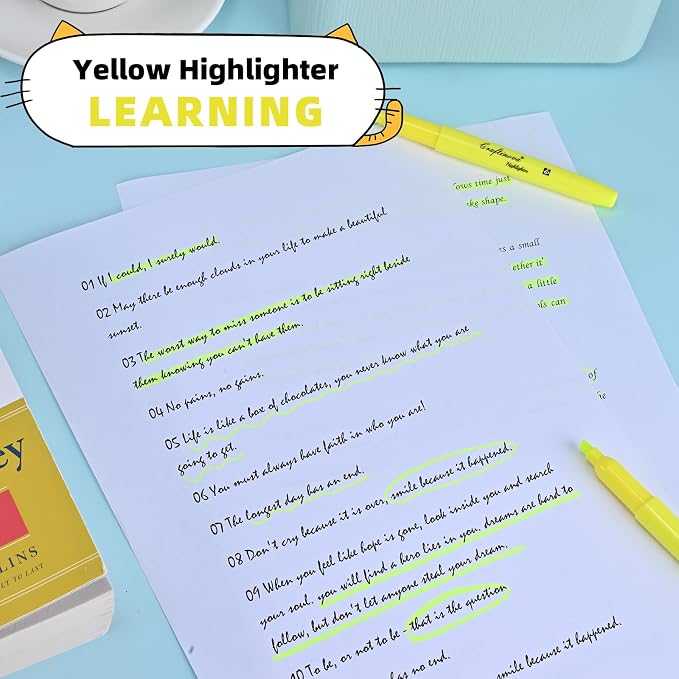 Yellow Highlighter
LEARNING
Craftinova
Highlighter
ows time just
ke shape.
01 If I could, I surely would.
02 May there be enough clouds in your life to make a beautiful
sunset.
s a small
ether it'
a little
ls can
03 The worst way to miss someone is to be sitting right beside
them knowing you can't have them.
04 No pains, no gains.
05 Life is like a box of chocolates, you never know what you are
going to get.
of
06 You must always have faith in who you are!
07 The longest day has an end.
08 Don't cry because it is over, smile because it happened.
09 When you feel like hope is gone, look inside you and search
your soul. you will find a hero lies in you. dreams are hard to
follow, but don't let anyone steal your dream.
10 To be, or not to be - that is the question
has no end.
smile because it happened.
ey
LINS
LT TO LAST